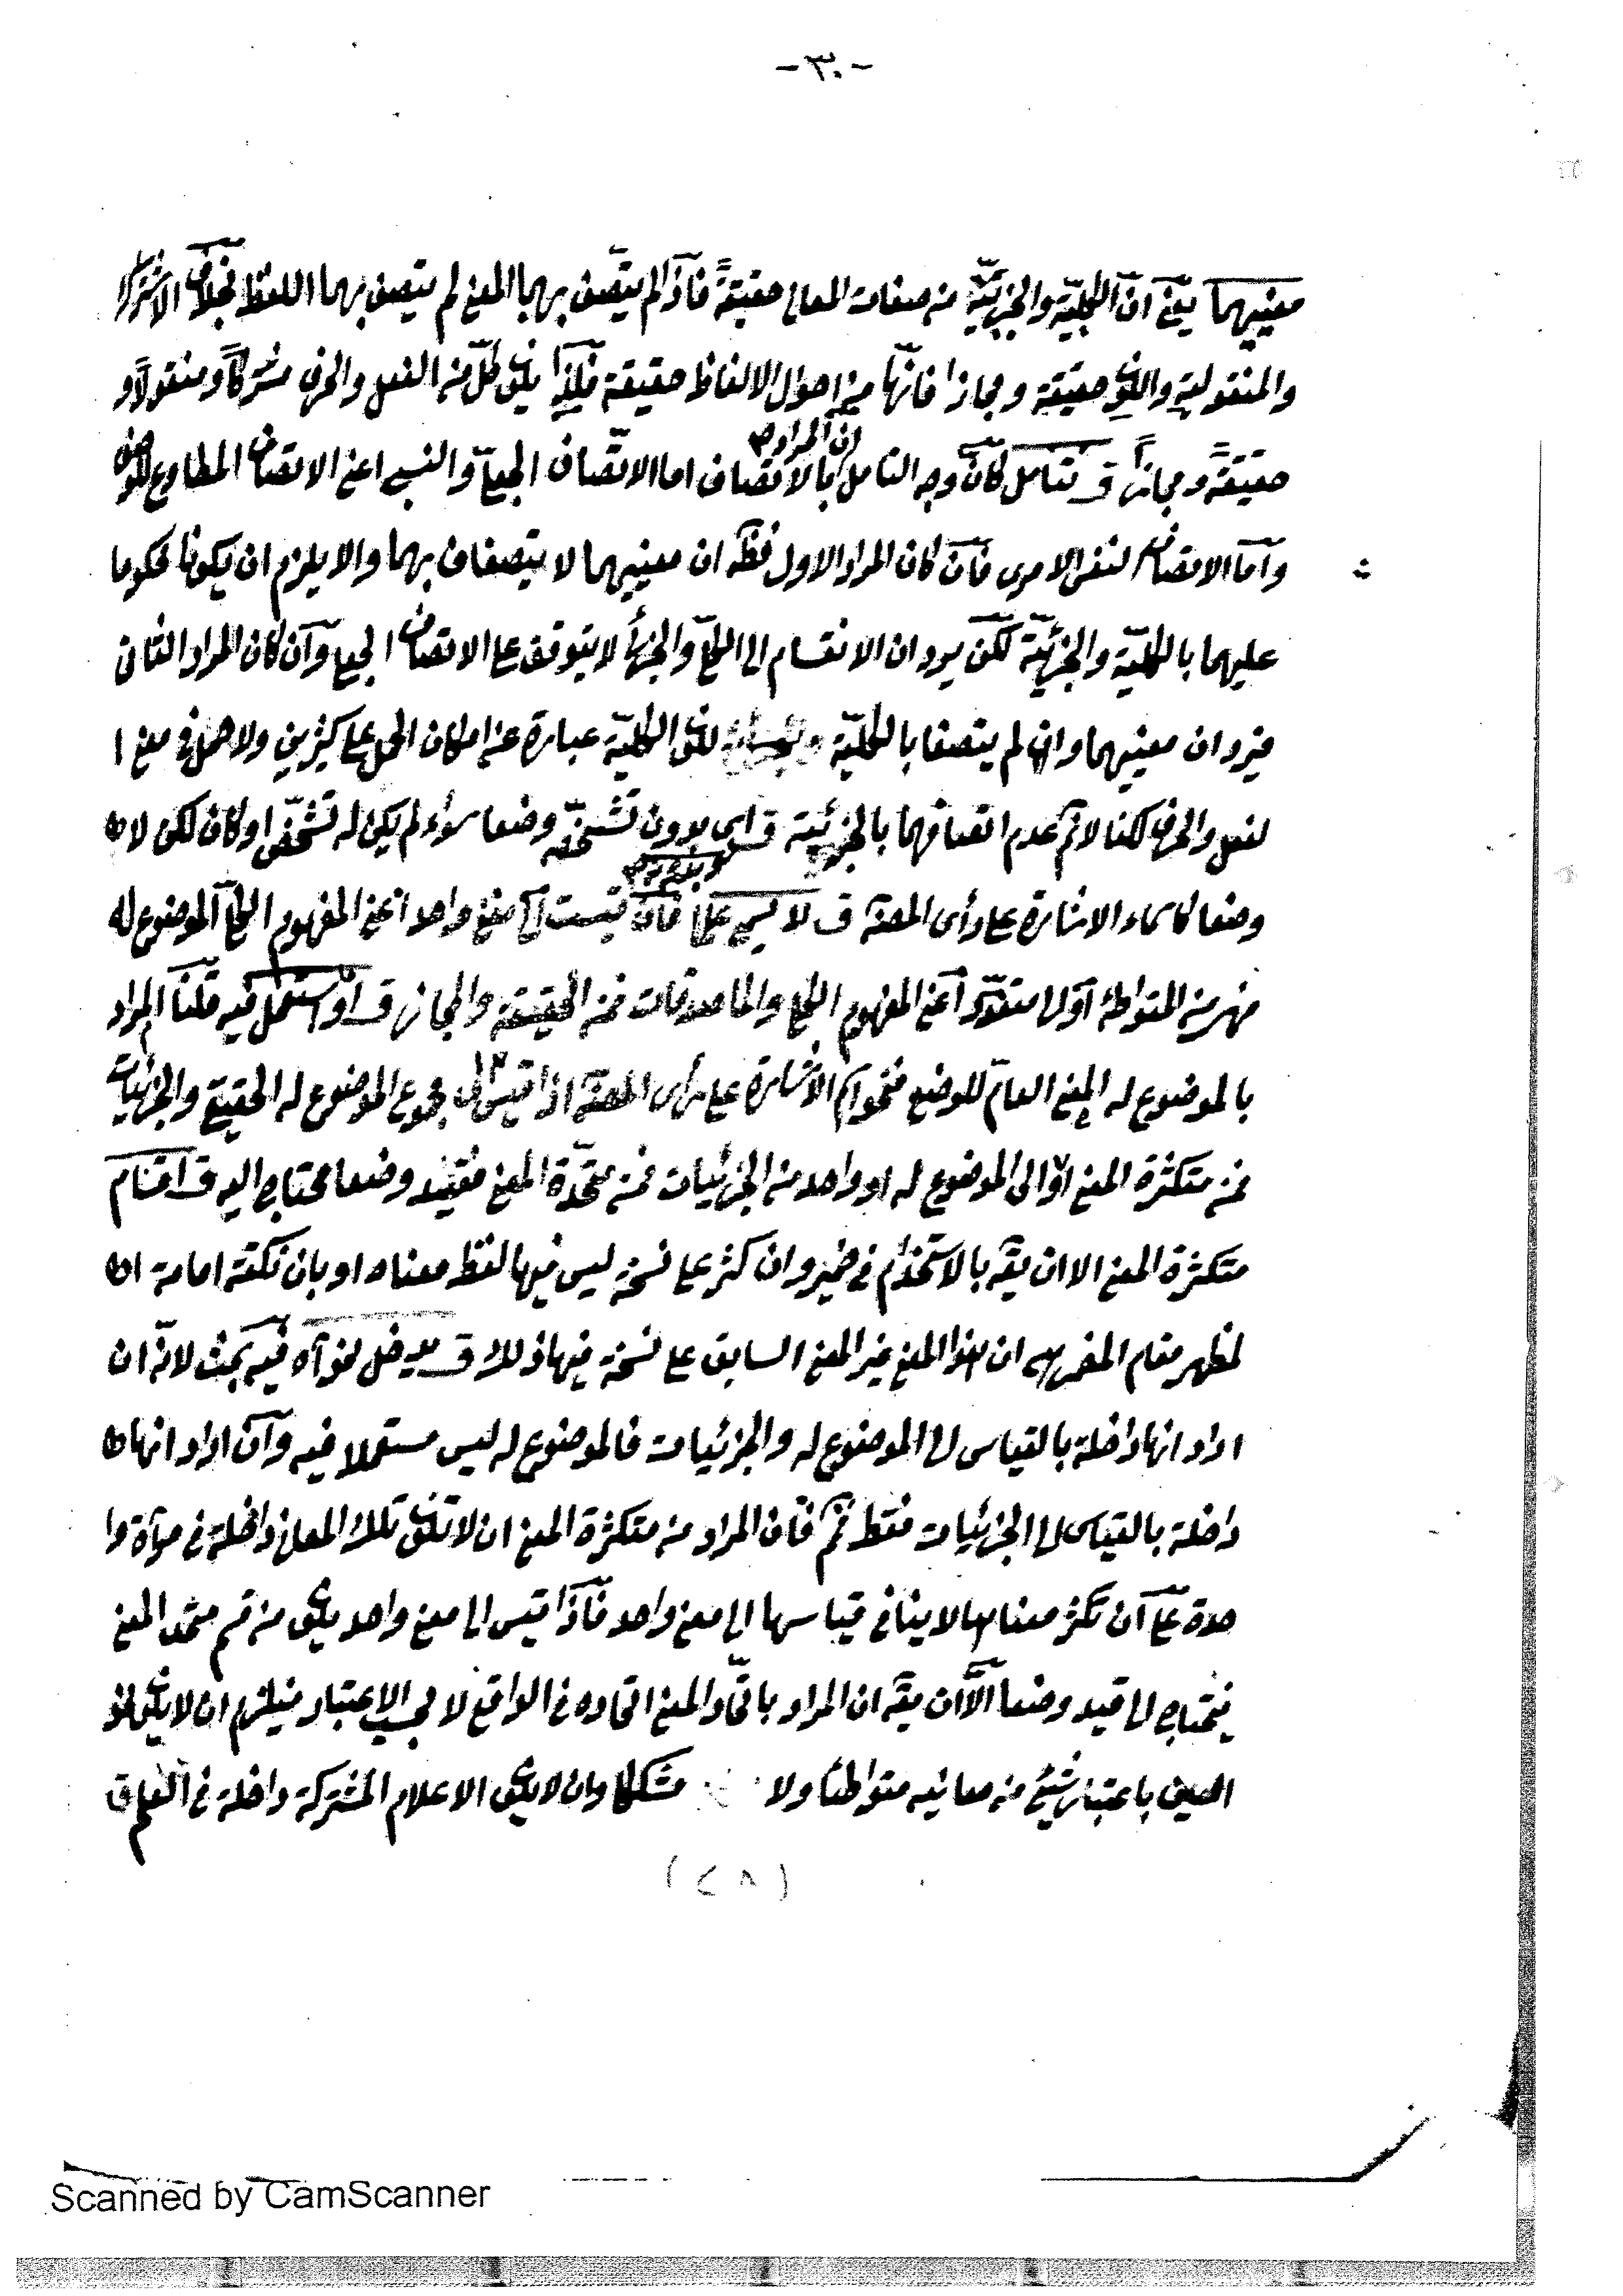 -٣٠-
معنييهما يعنى ان الكلية والجزئية من صفات المعانى حقيقةً فاذا لم يتصف بهما المعنى لم يتصف بهما اللفظ بخلاف الاشتراك
والمنقولية والكون حقيقة ومجازا فانها من احوال الالفاظ حقيقة فلذا يكون كل من الفعل والحرف مشتركاً ومنقولاً و
حقيقةً ومجازاً ق تتأمل كأن وجه التأمل ان المراد بالاتصاف اما الاتصاف الجعلى والنسبى اعنى الاتصاف المطاوع للوصف
واما الاتصاف النفس الامرى فان كان المراد الاول فظ ان معنييهما لا يتصفان بهما والا يلزم ان يكونا محكوما
عليهما بالكلية والجزئية لكن يرد ان الانقسام الى الكلى والجزئى لا يتوقف على الاتصاف الجعلى وان كان المراد الثانى
فيرد ان معنييهما وان لم يتصفا بالكلية لكون الكلية عبارة عن امكان الحمل على كثيرين ولا حمل فى معنى ا
لفعل والحرف لكنا لا نم عدم اتصافهما بالجزئية ق اى بدون تشخصه وضعا سواء لم يكن له تشخص او كان لكن لا
وضعا كاسماء الاشارة على رأى المص ق لا يسمى علما فان قيست الى معنى واحد اعنى المفهوم الكلى الموضوع له
فهى من المتواطئ او الى متعدد اعنى المفهوم الكلى والماصدقات فمن الحقيقة والمجاز ق او استعمل فيه قلنا المراد
بالموضوع له المعنى العام للوضع فنحو اسم الاشارة على رأى المص اذا قيس الى مجموع الموضوع له الحقيقى والجزئيات
فمن متكثرة المعنى او الى الموضوع له او واحد من الجزئيات فمن متحدة المعنى فقيد وضعا محتاج اليه ق اقسام
متكثرة المعنى الا ان يقه بالاستخدام فى ضمير وان كثر على نسخة ليس فيها لفظ معناه او بان نكتة اقامة
المظهر مقام المضمر هى ان هذا المعنى غير المعنى السابق على نسخة فيها ذلك ق يدخل نحو آه فيه بحث لانه ان
اراد انها داخلة بالقياس الى الموضوع له والجزئيات فالموضوع له ليس مستعملا فيه وان اراد انها
داخلة بالقياس الى الجزئيات فقط نم فان المراد من متكثرة المعنى ان لا تكون تلك المعانى داخلة فى مرآة وا
حدة على ان تكثر معناها لا ينافى قياسها الى معنى واحد فاذا قيس الى معنى واحد يكون من قسم متحد المعنى
فيحتاج الى قيد وضعا الا ان يقه ان المراد باتحاد المعنى اتحاده فى الواقع لا بحسب الاعتبار فيلزم ان لا يكون نحو
العين باعتبار شيئ من معانيه متواطئا ولا مشككا وان لا يكون الاعلام المشتركة داخلة فى العلم ق
(٢٨)
Scanned by CamScanner